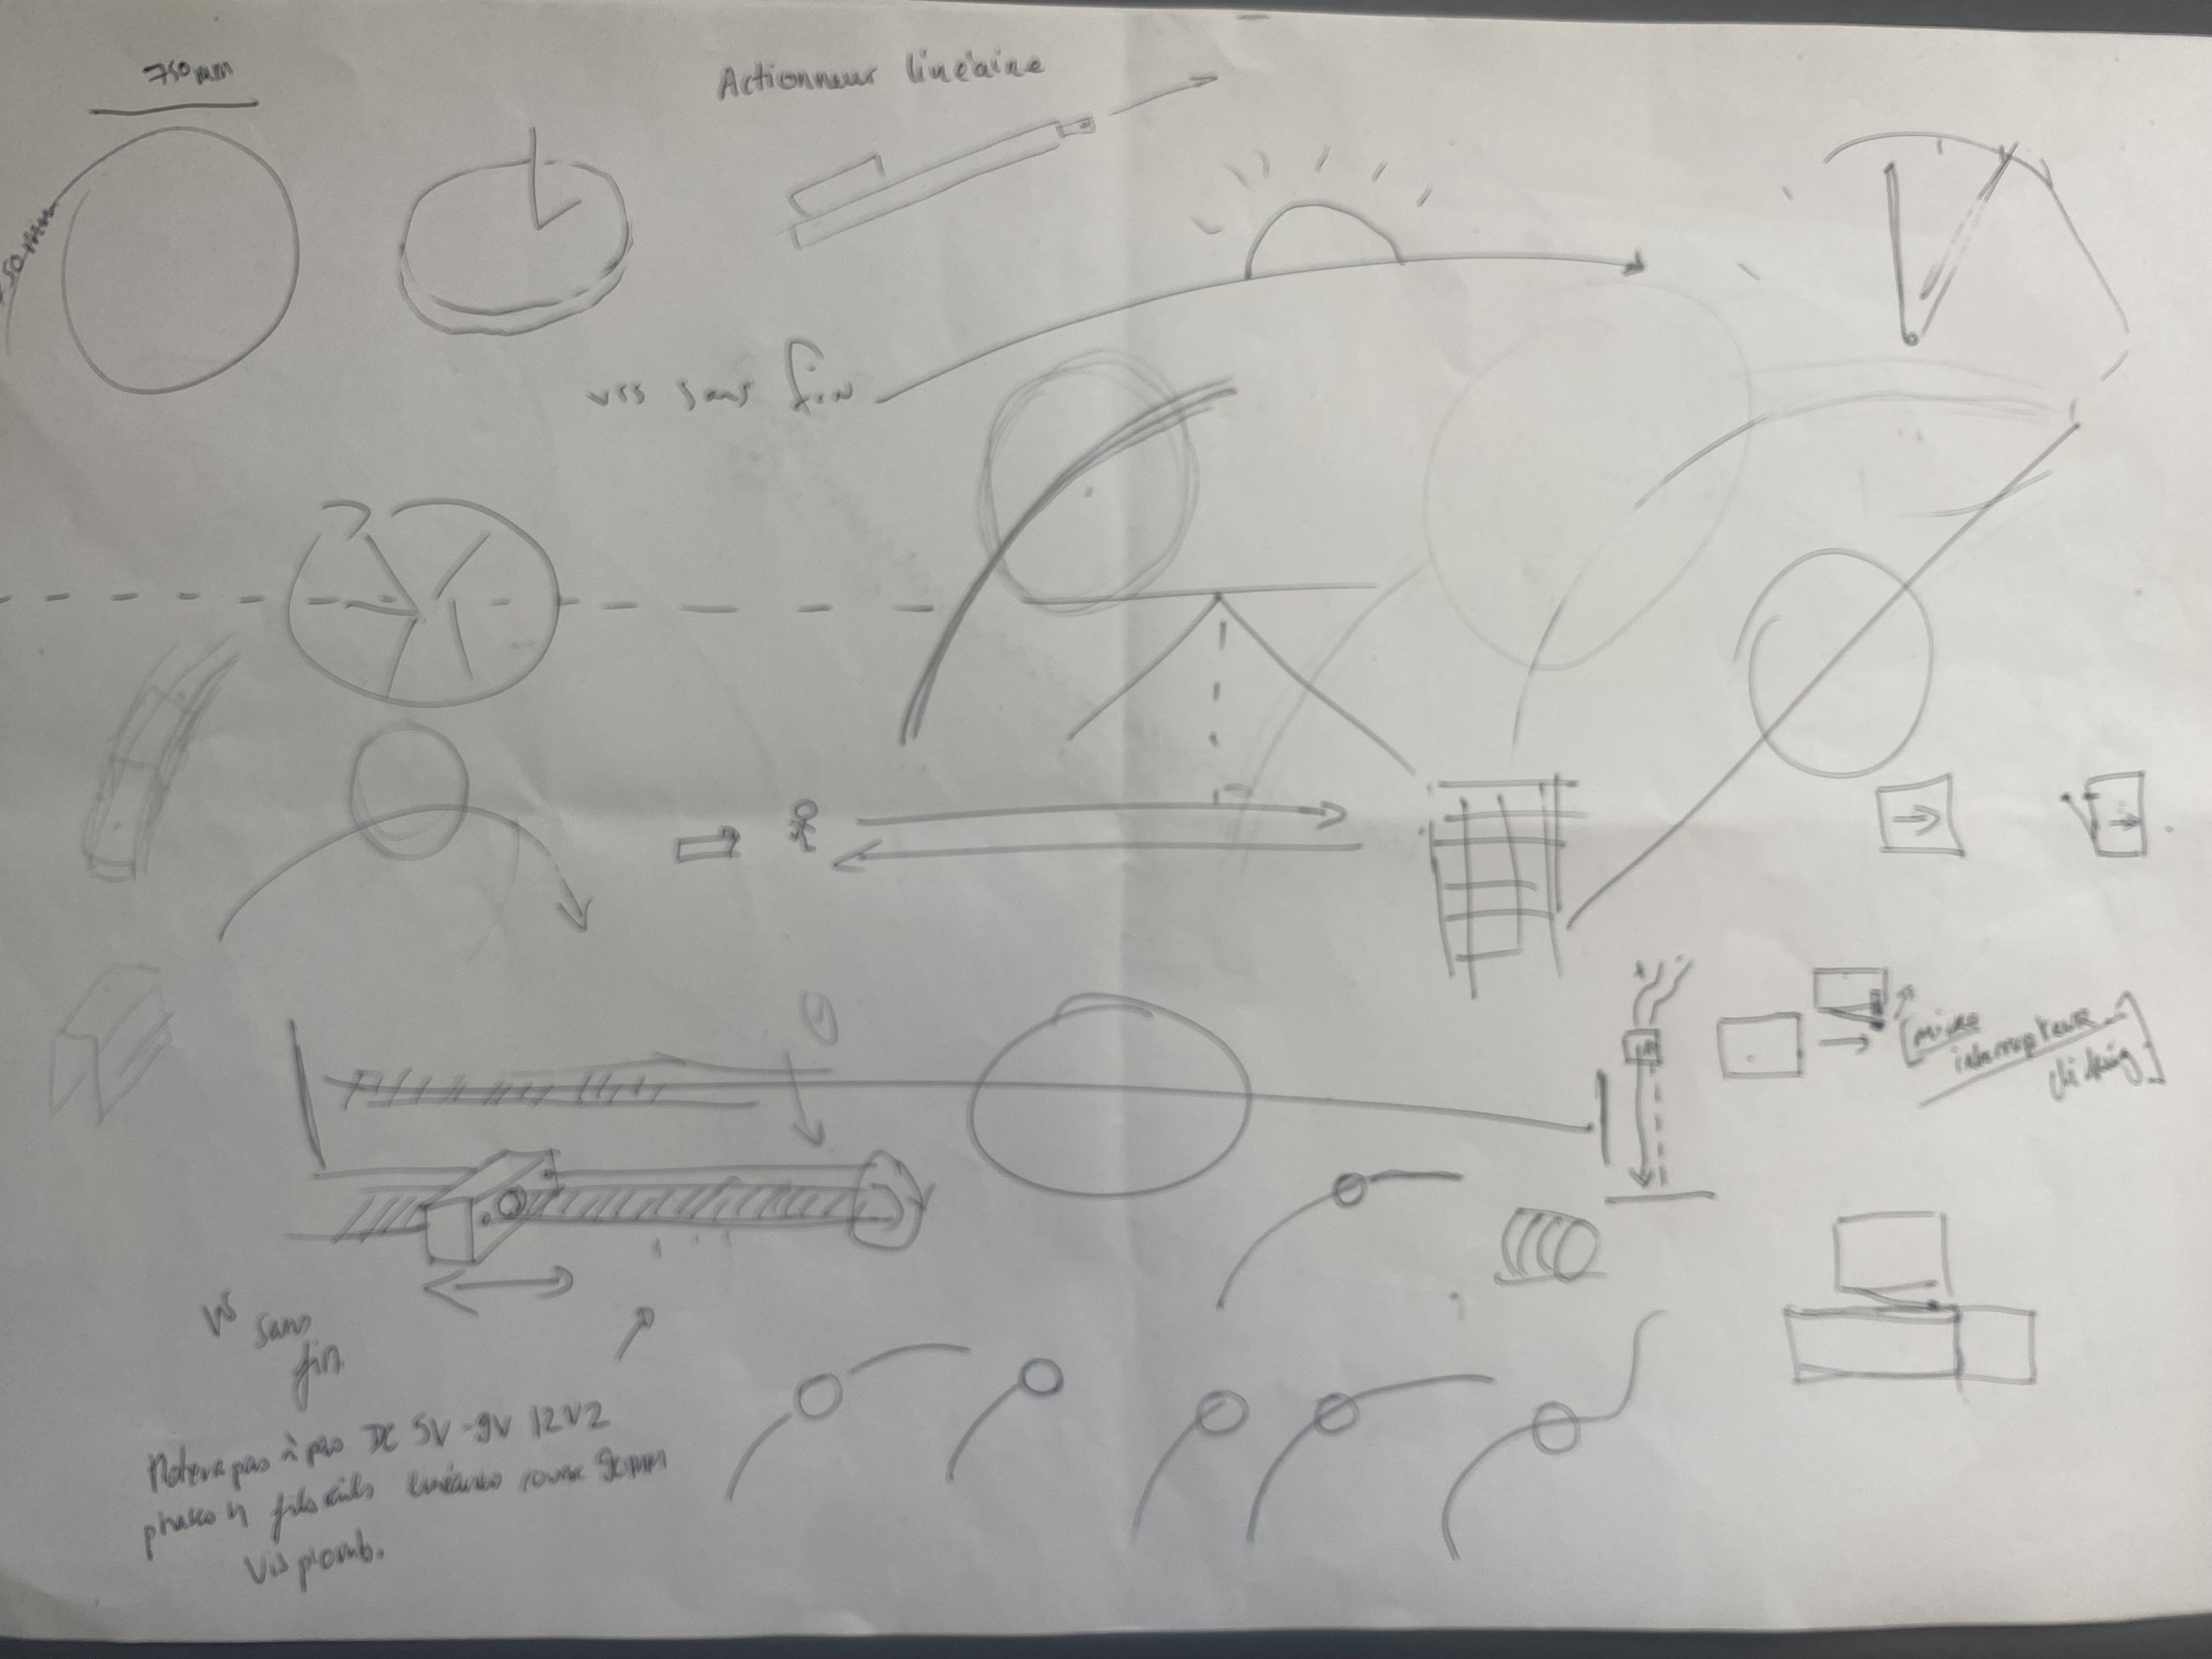 750mm
Actionneur linéaire
50mm
vis sans fin
micro
interrupteur
vis
sans
fin
Moteur pas à pas DC 5V-9V 12V2
phases 4 fils rails linéaires course 90MM
Vis plomb.